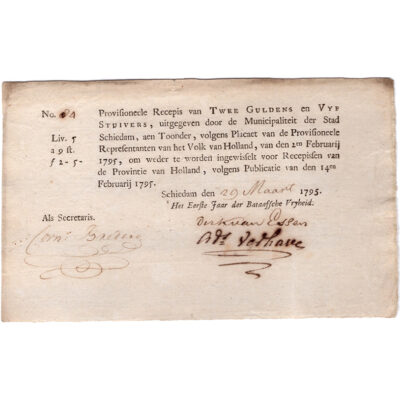 No. 84 Provisioneele Recepis van TWEE GULDENS en VYF
STUIVERS, uitgegeven door de Municipaliteit der Stad
Liv. 5 Schiedam, aen Toonder, volgens Placaet van de Provisioneele
a 9 st. Representanten van het Volk van Holland, van den 2den Februarij
f 2-5- 1795, om weder te worden ingewisselt voor Recepissen van
de Provintie van Holland, volgens Publicatie van den 14den
Februarij 1795.
Schiedam den 29 Maart 1795.
Het Eerste Jaar der Bataafsche Vryheid.
Als Secretaris. Dirk van Essen